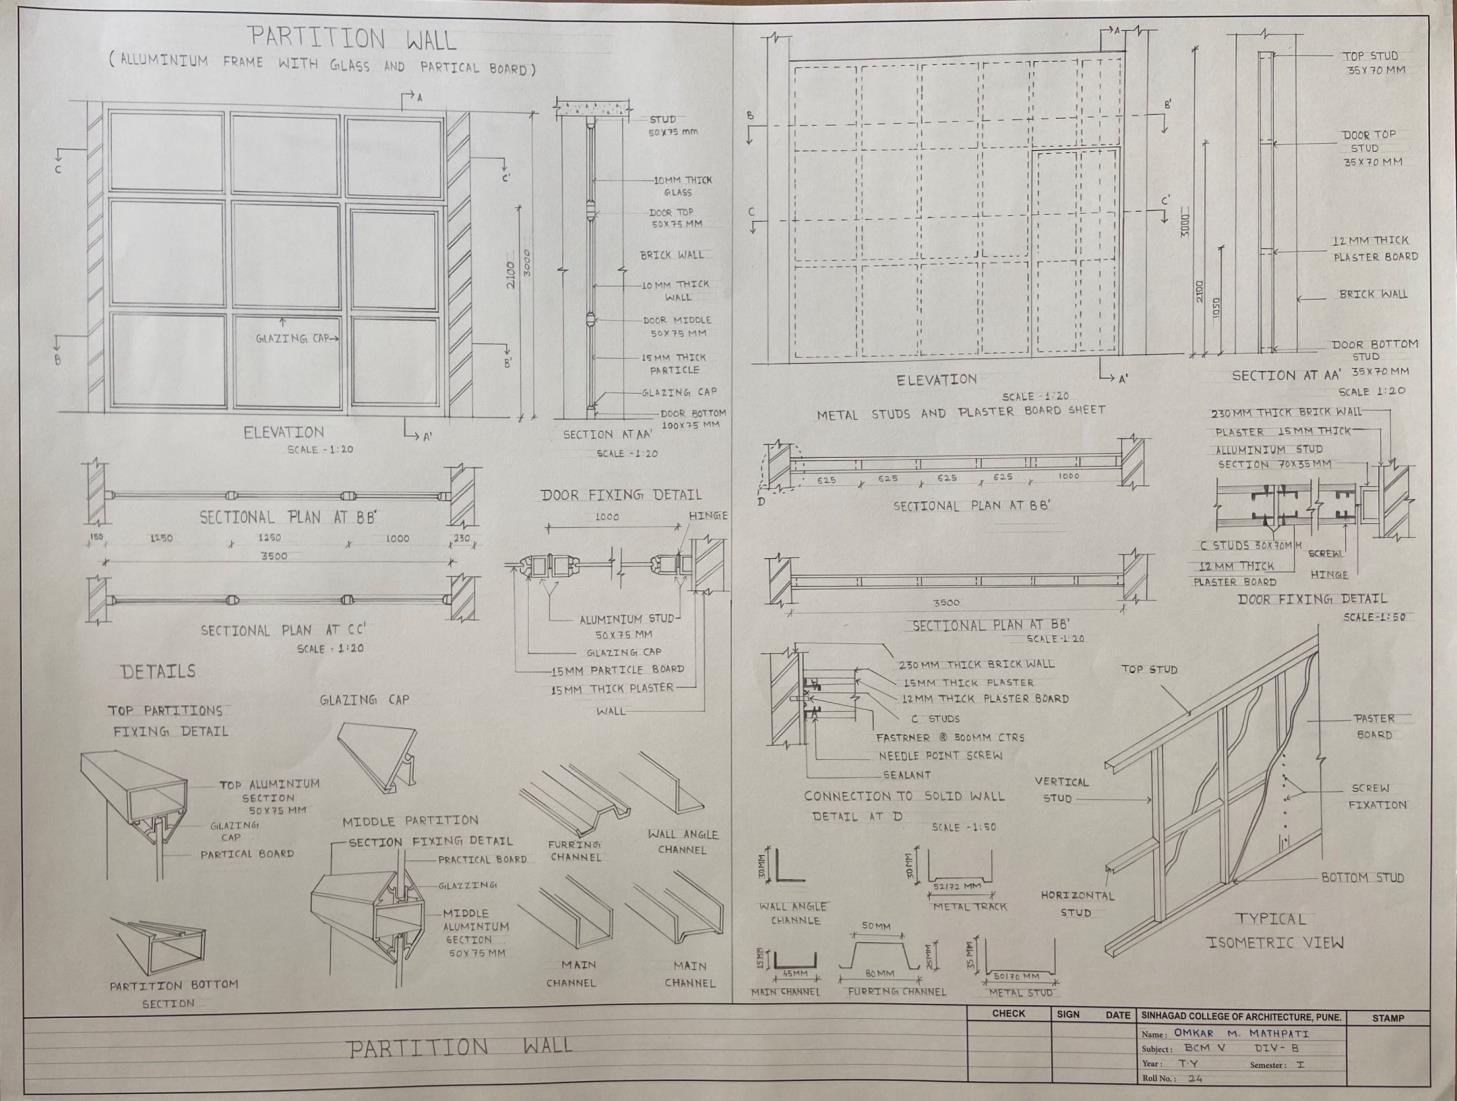 PARTITION WALL
(ALLUMINIUM FRAME WITH GLASS AND PARTICAL BOARD)
A
C
C'
B
B'
GLAZING CAP
2100
3000
A'
ELEVATION
SCALE -1:20
STUD
50X75 mm
10MM THICK
GLASS
DOOR TOP
50X75 MM
BRICK WALL
10MM THICK
WALL
DOOR MIDDLE
50X75 MM
15MM THICK
PARTICLE
GLAZING CAP
DOOR BOTTOM
100X75 MM
SECTION AT AA'
SCALE -1:20
SECTIONAL PLAN AT BB'
150
1250
1250
1000
230
3500
SECTIONAL PLAN AT CC'
SCALE -1:20
DOOR FIXING DETAIL
1000
HINGE
ALUMINIUM STUD
50X75 MM
GLAZING CAP
15MM PARTICLE BOARD
15MM THICK PLASTER
WALL
DETAILS
TOP PARTITIONS
FIXING DETAIL
TOP ALUMINIUM
SECTION
50X75 MM
GLAZING
CAP
PARTICAL BOARD
GLAZING CAP
MIDDLE PARTITION
SECTION FIXING DETAIL
PRACTICAL BOARD
GLAZZING
MIDDLE
ALUMINIUM
SECTION
50X75 MM
PARTITION BOTTOM
SECTION
FURRING
CHANNEL
WALL ANGLE
CHANNEL
MAIN
CHANNEL
MAIN
CHANNEL
A
B
B'
C
C'
3000
2100
1050
A'
ELEVATION
SCALE -1:20
METAL STUDS AND PLASTER BOARD SHEET
TOP STUD
35X70 MM
DOOR TOP
STUD
35X70 MM
12MM THICK
PLASTER BOARD
BRICK WALL
DOOR BOTTOM
STUD
35X70MM
SECTION AT AA'
SCALE 1:20
625
625
625
625
1000
D
SECTIONAL PLAN AT BB'
3500
SECTIONAL PLAN AT BB'
SCALE-1:20
230MM THICK BRICK WALL
PLASTER 15MM THICK
ALUMINIUM STUD
SECTION 70X35MM
C STUDS 30X70MM
SCREW
12 MM THICK
PLASTER BOARD
HINGE
DOOR FIXING DETAIL
SCALE-1:50
230MM THICK BRICK WALL
15MM THICK PLASTER
12MM THICK PLASTER BOARD
C STUDS
FASTRNER @ 300MM CTRS
NEEDLE POINT SCREW
SEALANT
CONNECTION TO SOLID WALL
DETAIL AT D
SCALE -1:50
30MM
WALL ANGLE
CHANNLE
30MM
52/72 MM
METAL TRACK
15MM
45MM
MAIN CHANNEL
50MM
25MM
80MM
FURRING CHANNEL
35 MM
50/70 MM
METAL STUD
TOP STUD
PASTER
BOARD
VERTICAL
STUD
SCREW
FIXATION
BOTTOM STUD
HORIZONTAL
STUD
TYPICAL
ISOMETRIC VIEW
PARTITION WALL
CHECK
SIGN
DATE
SINHAGAD COLLEGE OF ARCHITECTURE, PUNE.
STAMP
Name : OMKAR M. MATHPATI
Subject : BCM V DIV-B
Year : T.Y Semester : I
Roll No. : 24